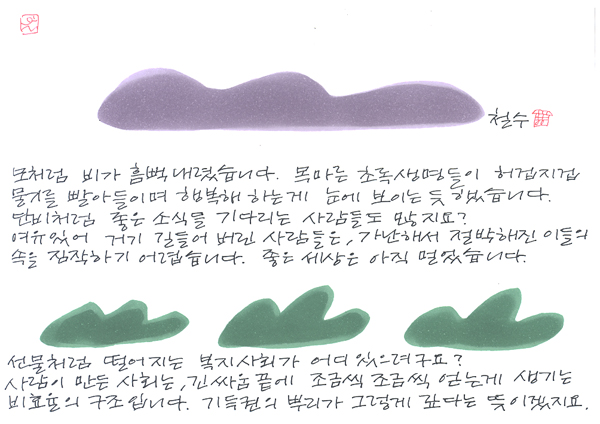 철수
모처럼 비가 흠뻑 내렸습니다. 목마른 초록생명들이 허겁지겁
물기를 빨아들이며 행복해 하는게 눈에 보이는 듯 했습니다.
단비처럼 좋은 소식을 기다리는 사람들도 많지요?
여유있어 거기 길들어 버린 사람들은, 가난해서 절박해진 이들의
속을 짐작하기 어렵습니다. 좋은 세상은 아직 멀었습니다.
선물처럼 떨어지는 복지사회가 어디 있으려구요?
사람이 만든 사회는, 긴싸움 끝에 조금씩 조금씩 얻는게 생기는
비효율의 구조입니다. 기득권의 뿌리가 그렇게 깊다는 뜻이겠지요.